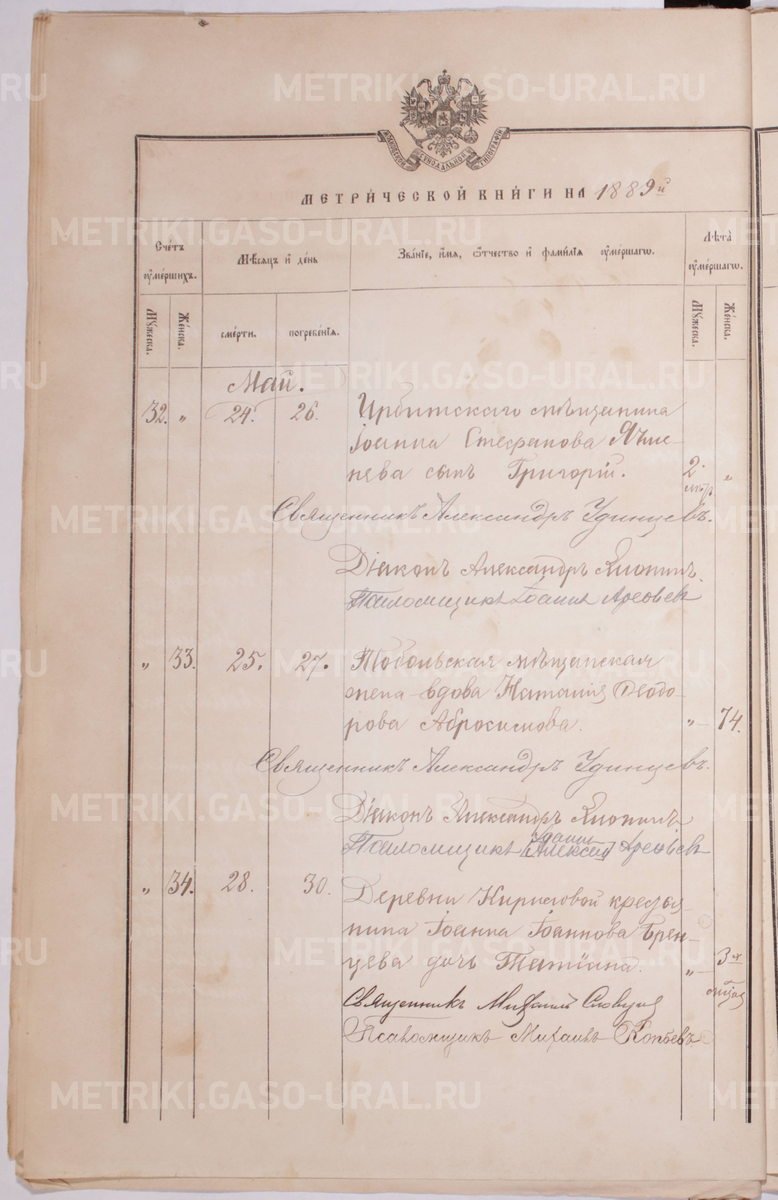 МЕТРИ́ЧЕСКОЙ КНИ́ГИ НА 1889й
Сче́тъ ᲂумéршихъ.
Мѣ́сяцъ и де́нь
Зва́нїе, и́мя, ѻ́тчество и фами́лїя ᲂуме́ршагѡ.
Лѣта̀ ᲂуме́ршагѡ.
Мꙋ́жеска.
Же́нска.
сме́рти.
погребе́нїѧ.
Мꙋ́жеска.
Же́нска.
Май.
32. „ 24. 26. Ирбитскаго мѣщанина
Іоанна Стефанова Ячме-
нева сынъ Григорій. 2. „
Священникъ Александръ Удинцевъ.
Діаконъ Александръ
Псаломщикъ Іоаннъ Арефьевъ
„ 33. 25. 27. Тобольская мѣщанская
жена-вдова Наталія Ѳеодо-
рова Абросимова. „ 74.
Священникъ Александръ Удинцевъ.
Діаконъ Александръ
Іоаннъ
Псаломщикъ [Алексѣй] Арефьевъ
„ 34. 28. 30. Деревни Кириловой крестья-
нина Іоанна Іоаннова Брен-
цева дочь Татіана. „ 3хъ
Священникъ Михаилъ Словцовъ
Псаломщикъ Михаилъ Копьевъ
METRIKI.GASO-URAL.RU